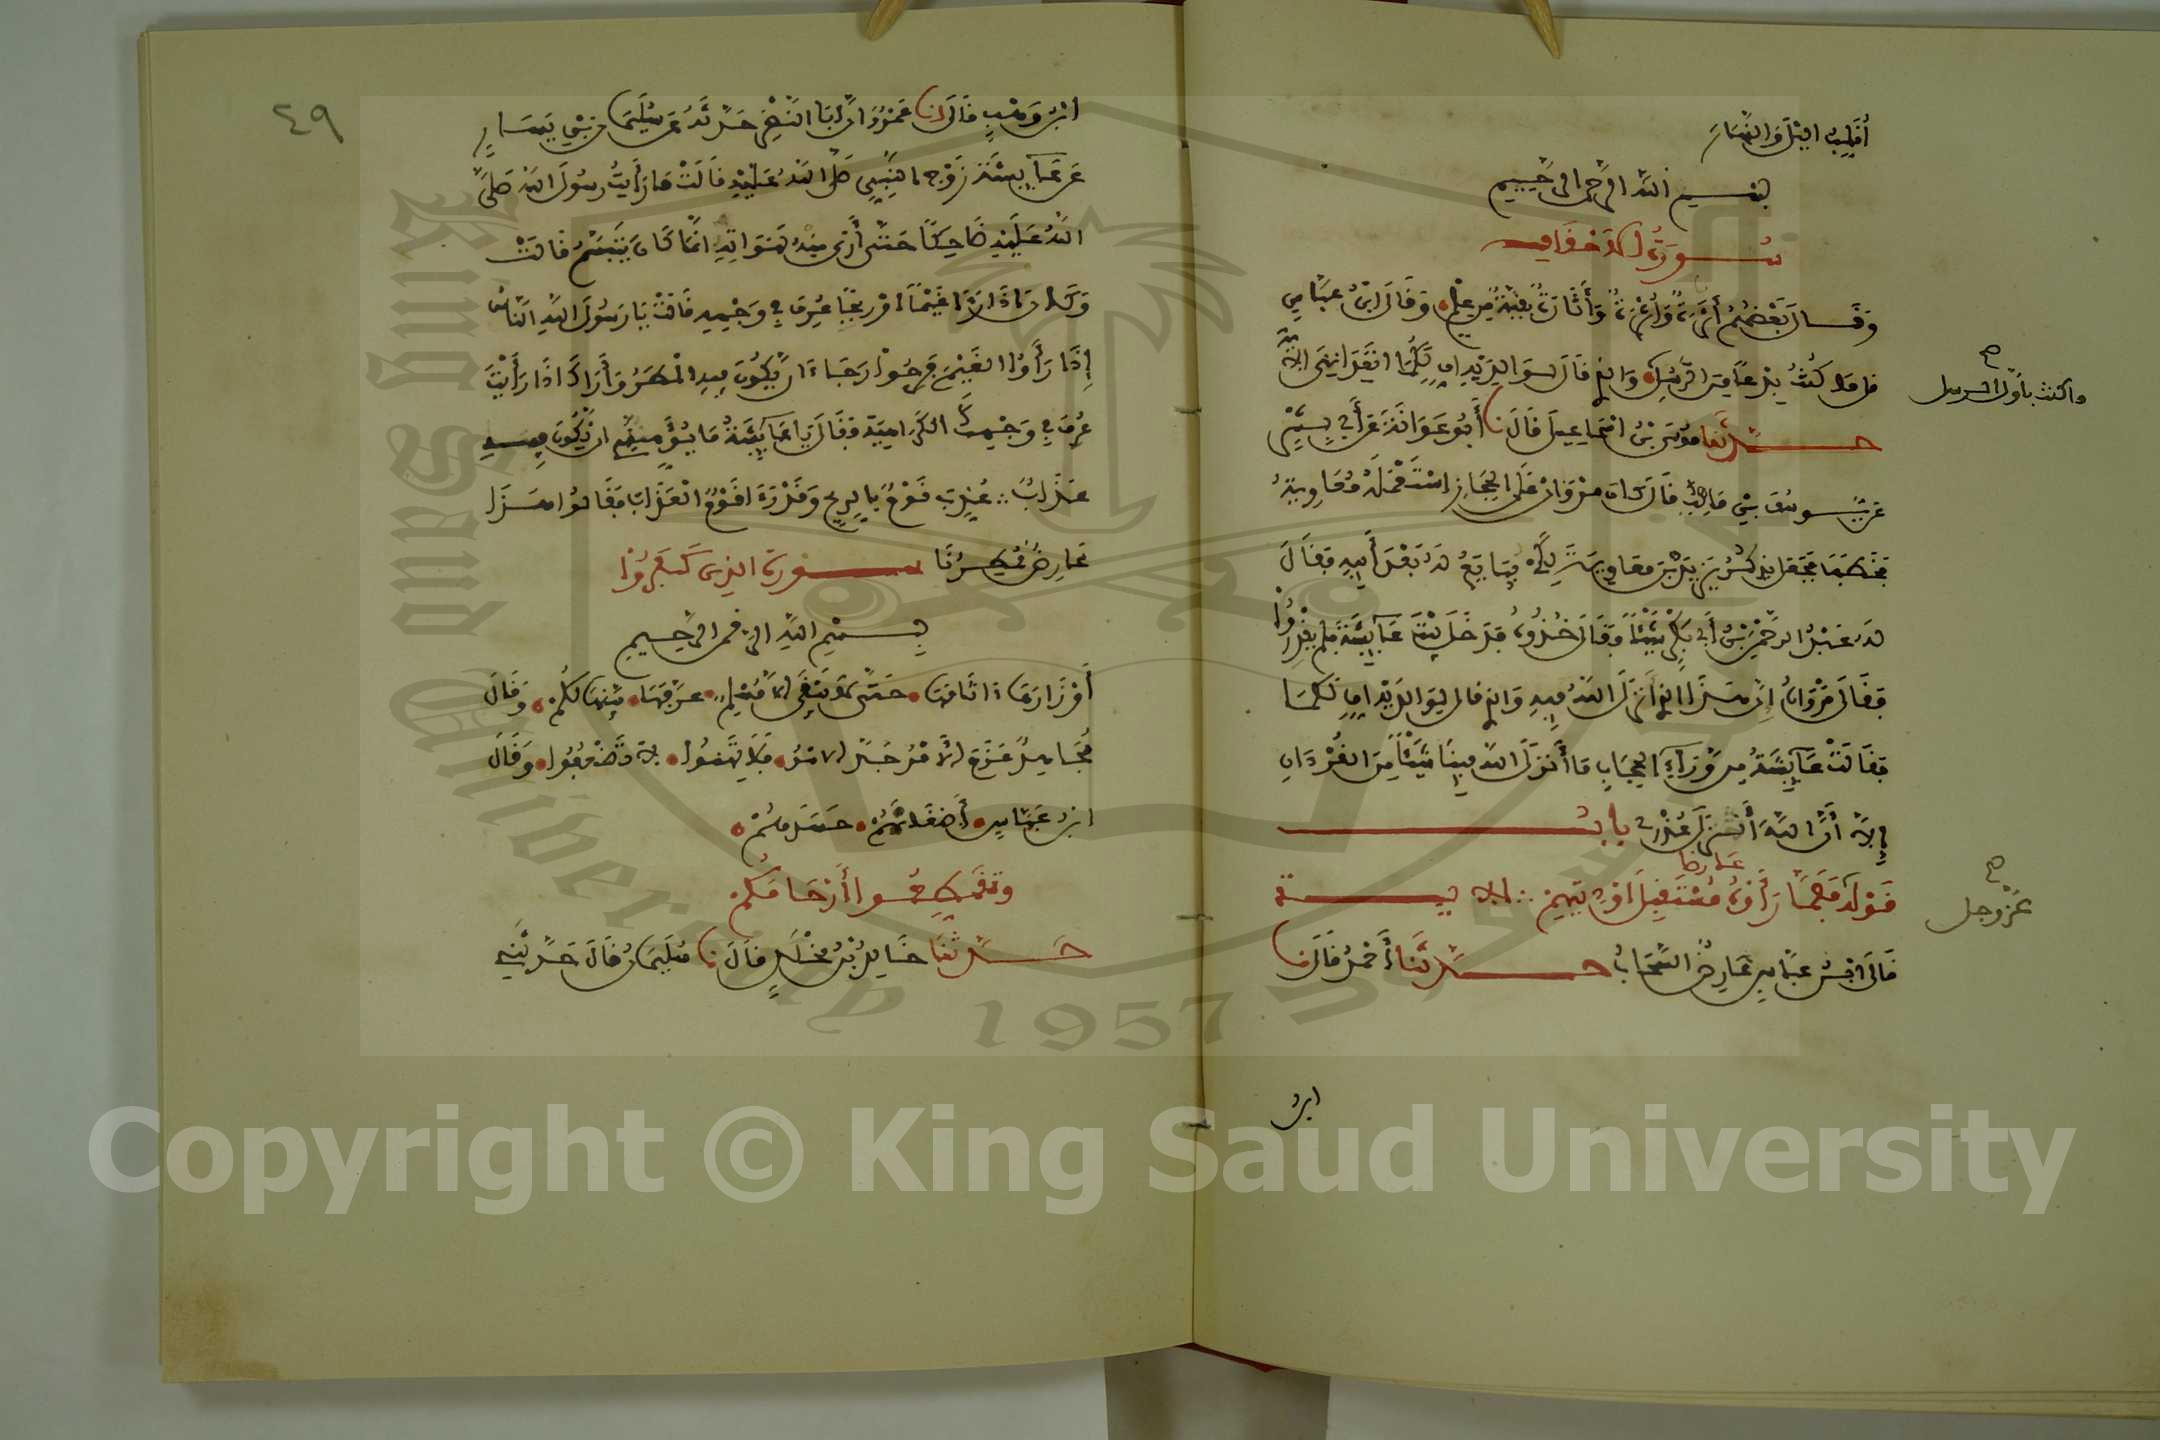 أُقَلِّبُ اليْلَ وَالنَّهَارَ
بسم الله الرحمن الرحيم
سورة الاحقاف
وَقَالَ بَعْضُهُمْ أَثَرَةٍ وَأُثْرَةٍ وَأَثَارَةٍ بَقِيَّةٌ مِنْ عِلْمٍ وَقَالَ ابْنُ عَبَّاسٍ
مَا كُنْتُ بِدْعًا مِنَ الرُّسُلِ وَالَّذِي قَالَ لِوَالِدَيْهِ أُفٍّ لَكُمَا أَتَعِدَانِنِي الآية
ما كنت بأول الرسل
حدثنا موسى بْنُ اسْمَاعِيلَ قَالَ نا أَبُو عَوَانَةَ عَنْ أَبِي بِشْرٍ
عَنْ يُوسُفَ بْنِ مَاهِكَ قَالَ كَانَ مَرْوَانُ عَلَى الْحِجَازِ اسْتَعْمَلَهُ مُعَاوِيَةُ
فَخَطَبَ فَجَعَلَ يَذْكُرُ يَزِيدَ بْنَ معاوية لِكَيْ يُبَايَعَ لَهُ بَعْدَ أَبِيهِ فَقَالَ
لَهُ عَبْدُ الرَّحْمٰنِ بْنُ أَبِي بَكْرٍ شَيْئًا فَقَالَ خُذُوهُ فَدَخَلَ بَيْتَ عَائِشَةَ فَلَمْ يَقْدِرُوا
فَقَالَ مَرْوَانُ إِنَّ هَذَا الذي أَنْزَلَ اللَّهُ فِيهِ وَالذِي قال لِوَالِدَيْهِ أُفٍّ لَكُمَا
فَقَالَتْ عَائِشَةُ مِنْ وَرَاءِ الحِجَابِ مَا أَنْزَلَ اللَّهُ فِينَا شَيْئًا مِنَ الْقُرْءَانِ
إِلَّا أَنَّ اللهَ أَنْزَلَ عُذْرِي باب
قَوْلُهُ فَلَمَّا رَأَوْهُ عارضا مُسْتَقْبِلَ أَوْدِيَتِهِمْ الآية
عز وجل
قَالَ ابْنُ عَبَّاسٍ عَارِضٌ السَّحَابُ حدثنا أَحْمَدُ قَالَ نا
ابن
٤٩
ابْنُ وَهْبٍ قَالَ انا عَمْرٌو أَنَّ أَبَا النَّضْرِ حَدَّثَهُ عَنْ سُلَيْمَانَ بْنِ يَسَارٍ
عَنْ عَائِشَةَ زَوْجِ النَّبِيِّ صَلَّى اللَّهُ عَلَيْهِ قَالَتْ مَا رَأَيْتُ رَسُولَ اللَّهِ صَلَّى
اللَّهُ عَلَيْهِ ضَاحِكًا حَتَّى أَرَى مِنْهُ لَهَوَاتِهِ انَّمَا كَانَ يَتَبَسَّمُ قَالَتْ
وَكَانَ إِذَا رَأَى غَيْمًا أَوْ رِيحًا عُرِفَ فِي وَجْهِهِ قَالَتْ يَا رَسُولَ اللَّهِ النَّاسُ
إِذَا رَأَوُا الْغَيْمَ فَرِحُوا رَجَاءَ أَنْ يَكُونَ فِيهِ الْمَطَرُ وَأَرَاكَ إِذَا رَأَيْتَهُ
عُرِفَ فِي وَجْهِكَ الْكَرَاهِيَةُ فَقَالَ يَا عَائِشَةُ مَا يُؤَمِّنُنِي أَنْ يَكُونَ فِيهِ
عَذَابٌ عُذِّبَ قَوْمٌ بِالرِّيحِ وَقَدْ رَءَا قَوْمٌ الْعَذَابَ فَقَالُوا هَذَا
عَارِضٌ مُمْطِرُنَا سورة الذين كَفَرُوا
بِسْمِ اللهِ الرحمن الرحيم
أَوْزَارَهَا ءَاثَامَهَا حَتَّى لَا يَبْقَى إلا مُسْلِمٌ عَرَّفَهَا بَيَّنَهَا لَكُمْ وَقَالَ
مُجَاهِدٌ عَزَمَ الْأَمْرُ جَدَّ الامْرُ فَلَا تَهِنُوا لا تَضْعُفُوا وَقَالَ
ابنُ عَبَّاسٍ أَضْغَانَهُمْ حَسَدَهُمْ
وتقطعوا أَرْحَامَكُمْ
حدثنا خَالِدُ بْنُ مَخْلَدٍ قَالَ نا سُلَيْمَانُ قَالَ حَدَّثَنِي
Copyright © King Saud University
King Saud University
1957